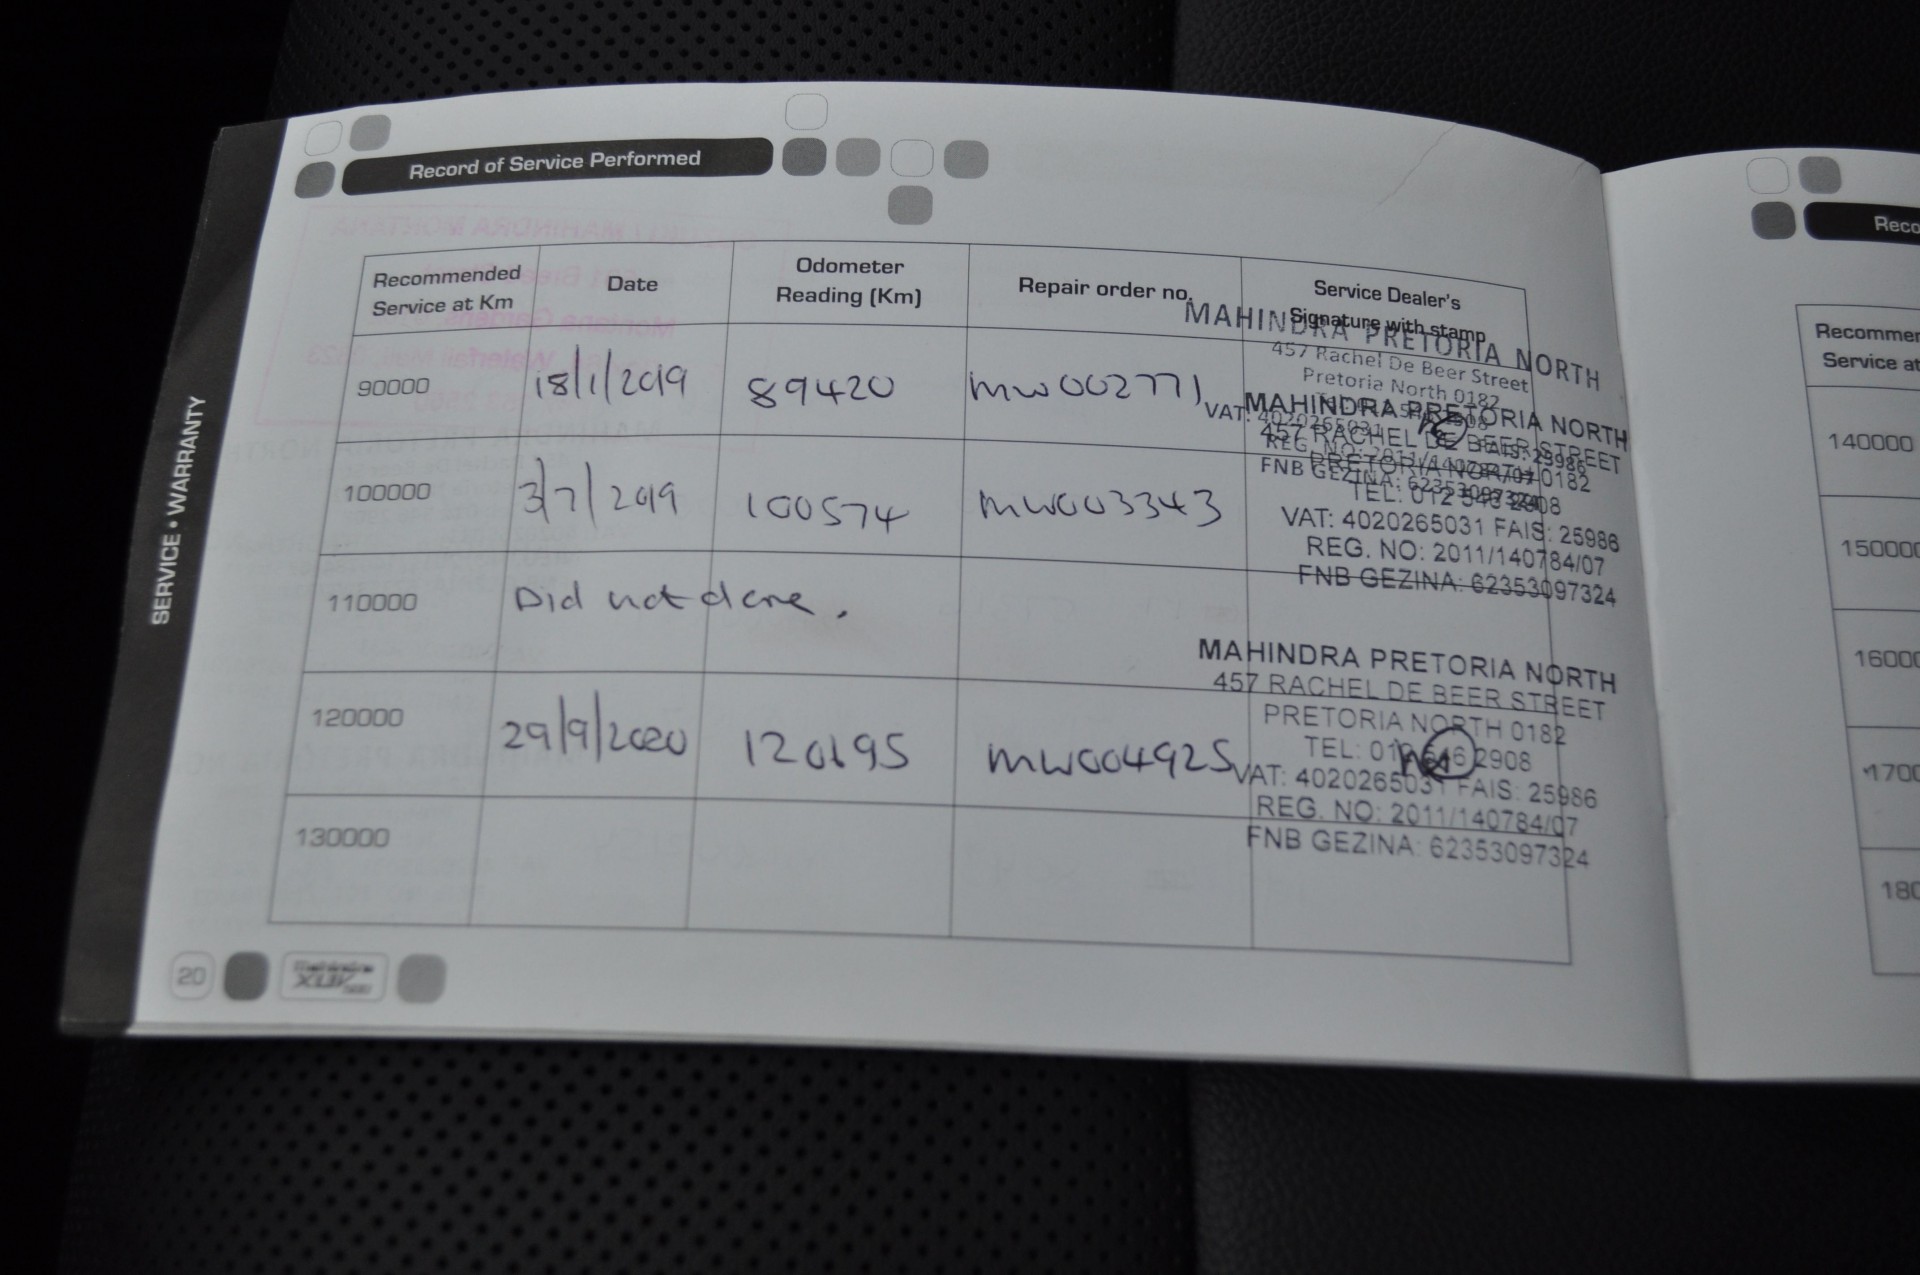 Record of Service Performed
Recommended Service at Km
Date
Odometer Reading (Km)
Repair order no.
Service Dealer's Signature with stamp
90000 18/1/2019 89420 MW002771
MAHINDRA PRETORIA NORTH
457 Rachel De Beer Street
Pretoria North 0182
VAT: 4020265031
REG. NO: 2011/140784/07
FNB GEZINA: 62353097324
100000 3/7/2019 100574 MW003343
MAHINDRA PRETORIA NORTH
457 RACHEL DE BEER STREET
PRETORIA NORTH 0182
TEL: 012 546 2908
VAT: 4020265031 FAIS: 25986
REG. NO: 2011/140784/07
FNB GEZINA: 62353097324
110000 Did not done.
120000 29/9/2020 120695 MW004925
MAHINDRA PRETORIA NORTH
457 RACHEL DE BEER STREET
PRETORIA NORTH 0182
TEL: 012 546 2908
VAT: 4020265031 FAIS: 25986
REG. NO: 2011/140784/07
FNB GEZINA: 62353097324
130000
SERVICE • WARRANTY
20
XUV
Reco
Recommen
Service at
140000
150000
16000
1700
180